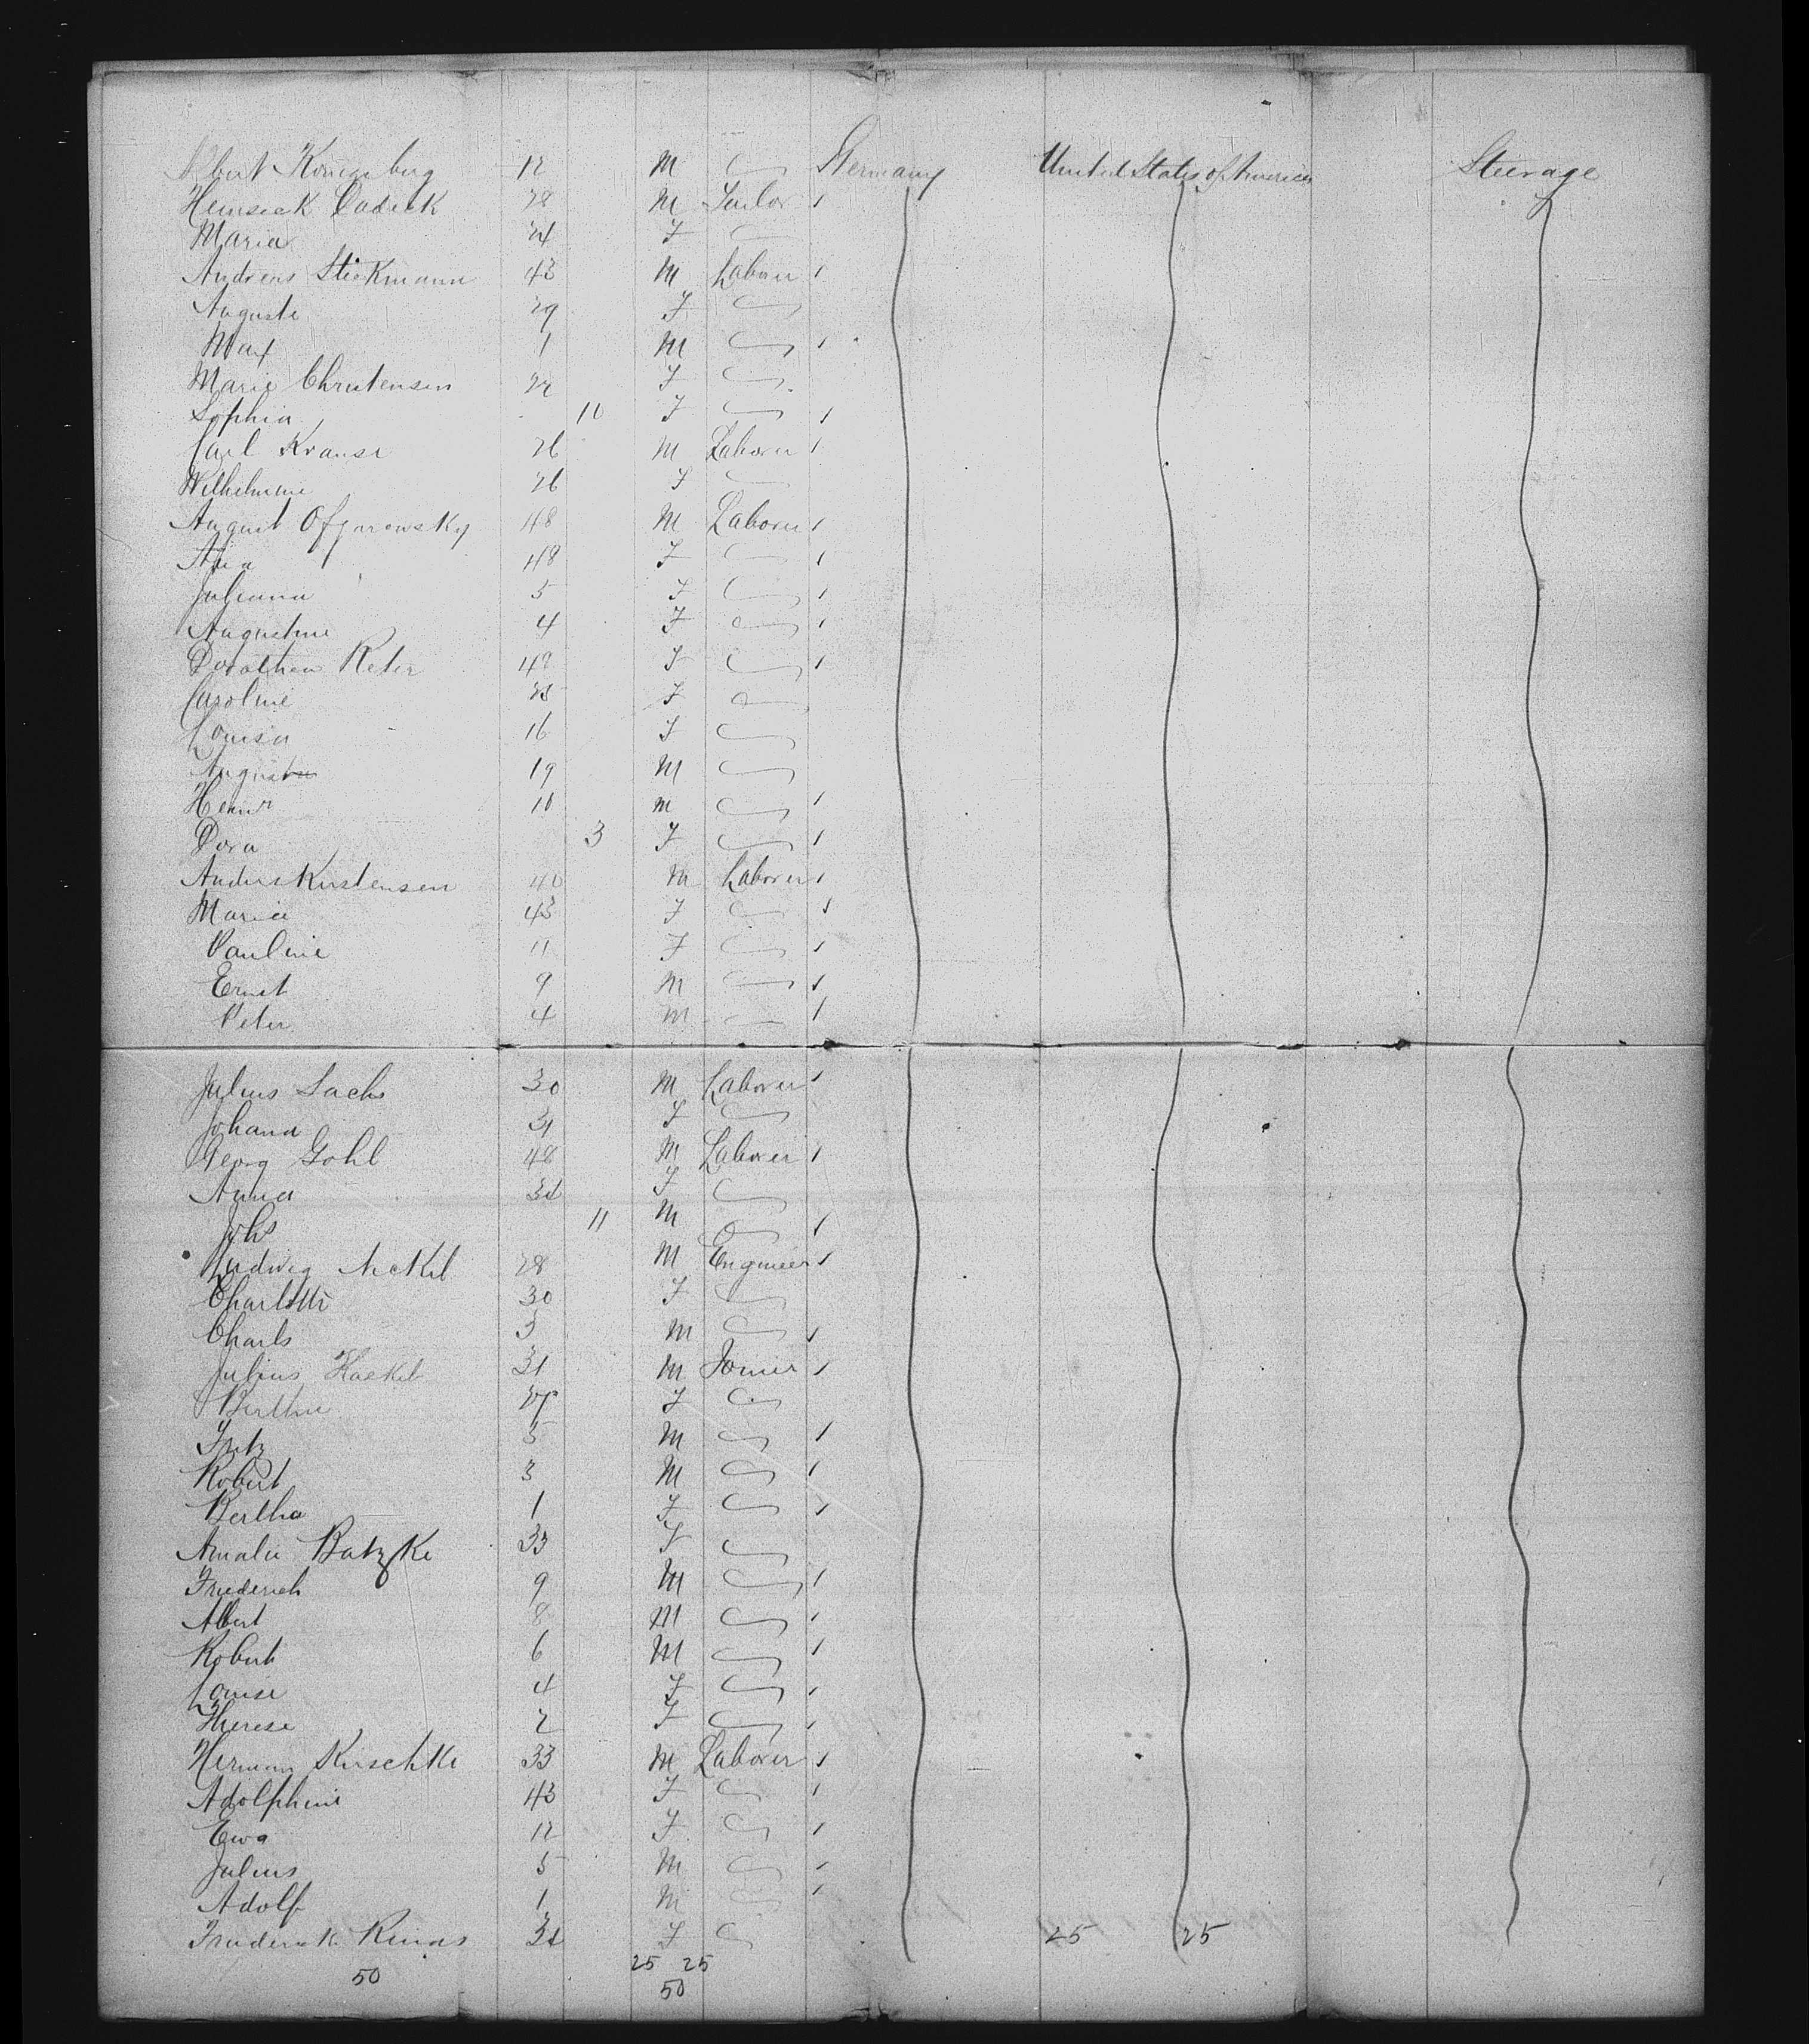 Albert Königsberg 12 M Germany United States of America Steerage
Heinseck Dadeck 28 M Tailor
Maria 24 F
Andreas Stiekmann 43 M Laborer
Auguste 29 F
Max 1 M
Marie Christensen 22 F
Sophia 10 F
Carl Krause 26 M Laborer
Wilhelmine 26 F
August 48 M Laborer
48 F
Juliana 5 F
Augustine 4 F
Dorothea Reter 48 F
Caroline 25 F
Louisa 16 F
August 19 M
Heinr 10 M
Dora 3 F
Anders Kristensen 40 M Laborer
Maria 43 F
Pauline 11 F
Ernst 9 M
Peter 4 M
Julius Sachs 30 M Laborer
Johana 31 F
Georg Gohl 48 M Laborer
Anna 32 F
Johs 11 M
Ludwig Neckel 28 M Engineer
Charlotte 30 F
Charls 3 M
Julius Haekel 31 M Joiner
Berthe 27 F
Fritz 5 M
Robert 3 M
Bertha 1 F
Amalie Batzke 33 F
Friederich 9 M
Albert 8 M
Robert 6 M
Louise 4 F
Therese 2 F
Herman Kuschke 33 M Laborer
Adolphine 43 F
Ewa 12 F
Julius 5 M
Adolf 1 M
Friederick Rinas 32 F 25 25
25 25
50 50